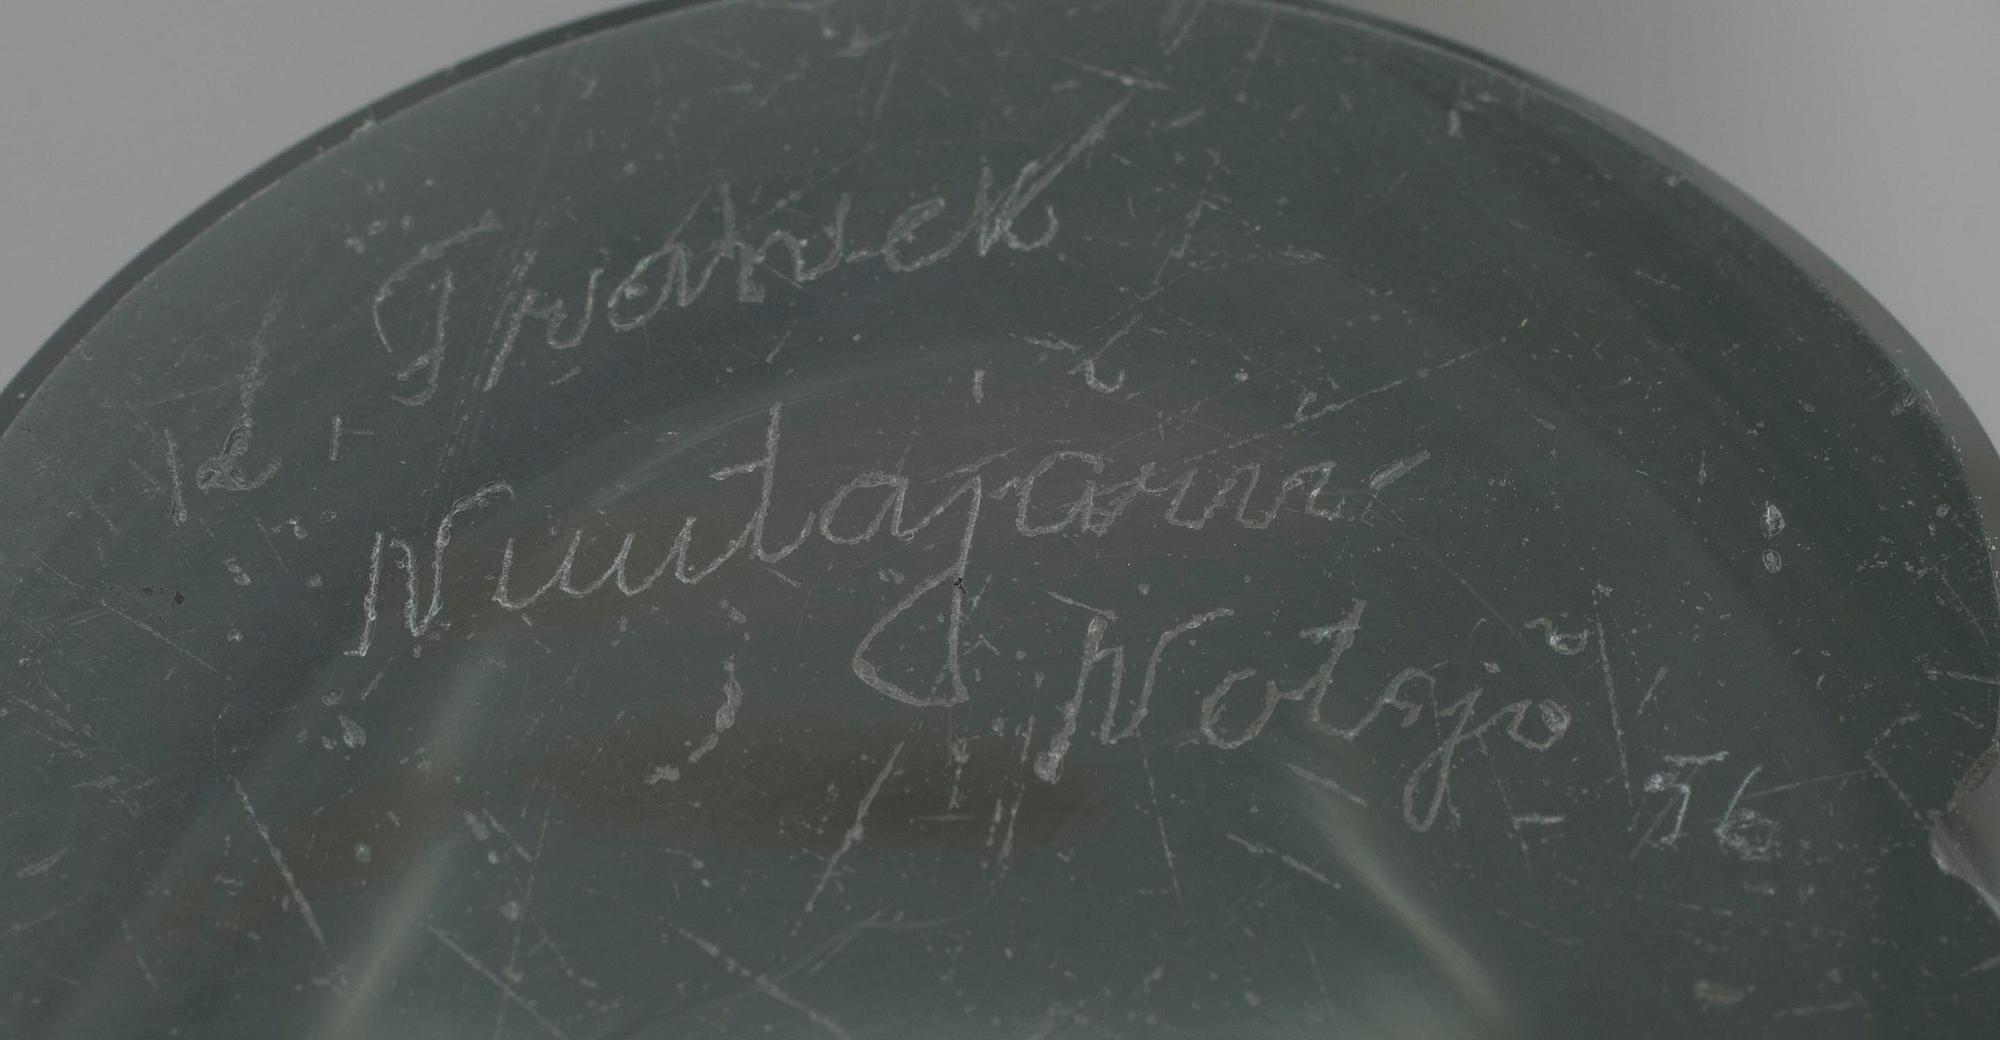 K. Franck
Nuutajärvi
Notsjö - 56